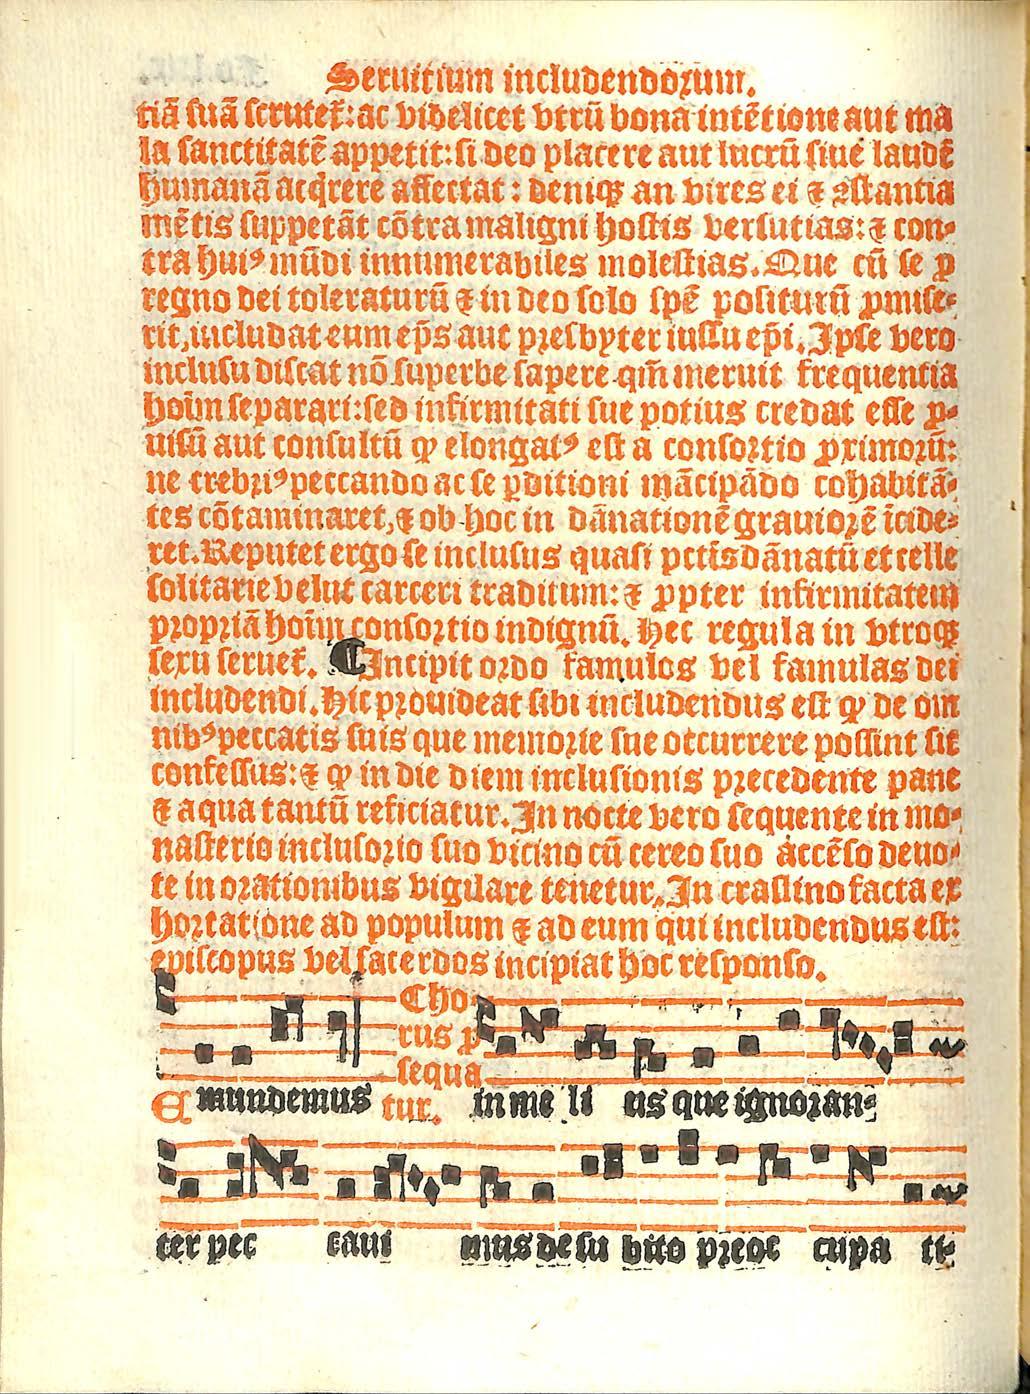 Seruitium includendorum.
tiā suā scrutet̃: ac videlicet vtrū bona intētione aut ma
la sanctitatē appetit: si deo placere aut lucrū siue laudē
humanā acq̇rere affectat: deniqꝫ an vires ei ⁊ ꝯstantia
mētis suppetāt cōtra maligni hostis versutias: ⁊ con⸗
tra huiꝰ mūdi innumerabiles molestias. Que cū se ꝓ
regno dei toleraturū ⁊ in deo solo spē positurū ꝓmise⸗
rit, includat eum ep̄s aut presbyter iussu ep̄i. Ipse vero
inclusu discat nō superbe sapere qm̄ meruit frequentia
hoīm separari: sed infirmitati sue potius credat esse ꝓ⸗
uisū aut consultū ꝙ elongatꝰ est a consortio ꝓximorū:
ne crebriꝰ peccando ac se ꝑditioni mācipādo cohabitā⸗
tes cōtaminaret, ⁊ ob hoc in dānationē grauiorē īcide⸗
ret. Reputet ergo se inclusus quasi pctīs dānatū et celle
solitarie velut carceri traditum: ⁊ ꝓpter infirmitatem
propriā hoīm consortio indignū. Hec regula in vtroqꝫ
sexu seruet̃. ¶ Incipit ordo famulos vel famulas dei
includendi. Hic prouideat sibi includendus est ꝙ de om
nibꝰ peccatis suis que memorie sue occurrere possint sit
confessus: ⁊ ꝙ in die diem inclusionis precedente pane
⁊ aqua tantū reficiatur. In nocte vero sequente in mo⸗
nasterio inclusorio suo vicino cū cereo suo accēso deuo⸗
te in orationibus vigilare tenetur. In crastino facta ex
hortatione ad populum ⁊ ad eum qui includendus est:
episcopus vel sacerdos incipiat hoc responso.
Cho
rus ꝓ
sequa
Emundemus tur. in me li us que ignoran⸗
ter pec caui mus de su bito preoc cupa ti⸗